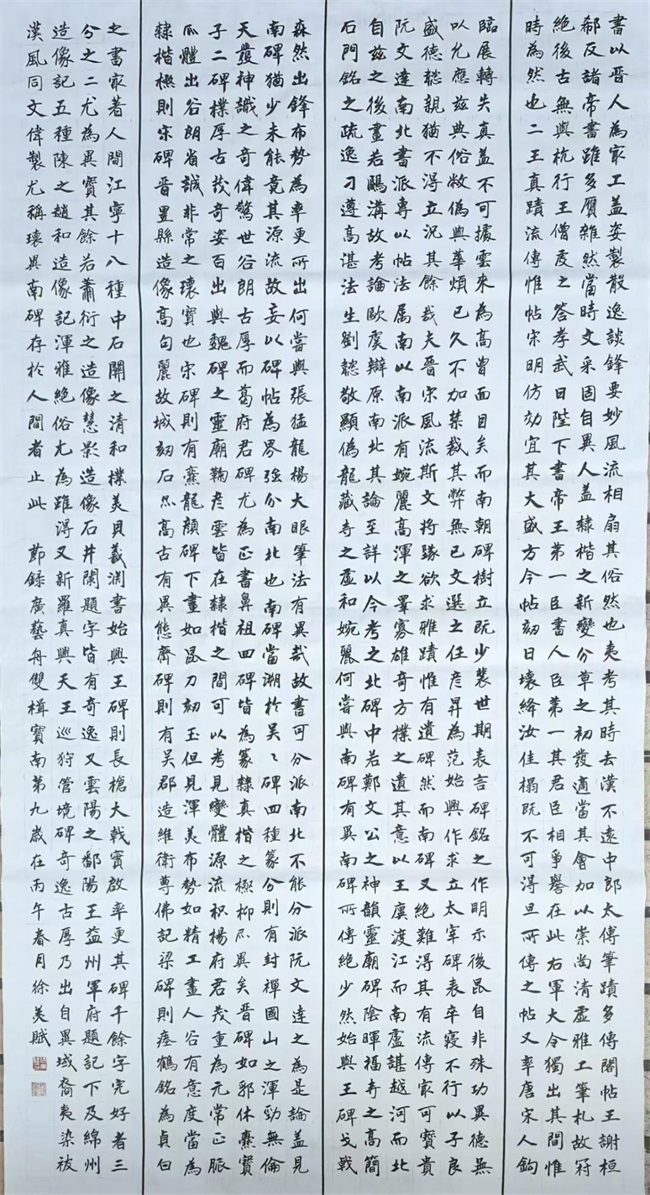 書以晋人為家工盖姿製散逸談鋒要妙風流相扇其俗然也夷考其時去漢不遠中郎太傅筆蹟多傳閣帖王謝桓
郗及諸帝書雖多贗雜然當時文采固自異人盖隸楷之新變分草之初發適當其會加以崇尚清虛雅工筆札故冠
絕後古無與抗行王僧虔之答孝武曰陛下書帝王第一臣書人臣第一其君臣相爭譽在此右軍大令獨出其間惟
時為然也二王真蹟流傳惟帖宋明仿効宜其大盛方今帖刻日壞絳汝佳榻既不可得且所傳之帖又率唐宋人鈎
臨展轉失真盖不可據雲來為高曾面目矣而南朝碑樹立既少裴世期表言碑銘之作明示後昆自非殊功異德無
以允應茲典俗敝偽興華煩已久不加禁裁其弊無已文選之任彥昇為范始興作求立太宰碑表卒寢不行以子良
盛德懿親猶不得立況其餘哉夫晉宋風流斯文將墜欲求雅蹟惟有遺碑然而南碑又絕難得其有流傳家可寶貴
阮文達南北書派專以帖法属南以南派有婉麗高渾之筆寡雄奇方樸之遺其意以王廙渡江而南盧諶越河而北
自茲之後畫若鴻溝故考論歐虞辯原南北其論至詳以今考之北碑中若鄭文公之神韻靈廟碑陰暉福寺之高簡
石門銘之疏逸刁遵高湛法生劉懿敬顯儁龍藏寺之虛和婉麗何嘗與南碑有異南碑所傳絕少然始興王碑戈戟
森然出鋒布勢為率更所出何嘗與張猛龍楊大眼筆法有異哉故書可分派南北不能分派阮文達之為是論盖見
南碑猶少未能竟其源流故妄以碑帖為界強分南北也南碑當溯於吳々碑四種篆分則有封禪國山之渾勁無倫
天發神讖之奇偉驚世谷朗古厚而葛府君碑尤為正書鼻祖四碑皆為篆隸真楷之極抑亦異矣晉碑如郛休爨寶
子二碑樸厚古茂奇姿百出與魏碑之靈廟鞠彥雲皆在隸楷之間可以考見變體源流枳楊府君茂重為元常正脈
瓜體出谷朗者誠非常之瓌寶也宋碑則有爨龍顏碑下畫如昆刀刻玉但見渾美布勢如精工畫人谷有意度當為
隸楷極則宋碑晉豐縣造像高句麗故城刻石亦高古有異態齊碑則有吳郡造維衛尊佛記梁碑則瘞鶴銘為貞白
之書家著人間江寧十八種中石闕之清和樸美貝義淵書始興王碑則長槍大戟實啟率更其碑千餘字完好者三
分之二尤為異寶其餘若蕭衍之造像慧影造像石井闌題字皆有奇逸又雲陽之鄱陽王益州軍府題記下及綿州
造像記五種陳之趙和造像記渾雅絕俗尤為難得又新羅真興天王巡狩管境碑奇逸古厚乃出自異域裔夷染被
漢風同文偉製尤稱瓌異南碑存於人間者止此 節錄廣藝舟雙楫寶南第九歲在丙午春月徐美賦